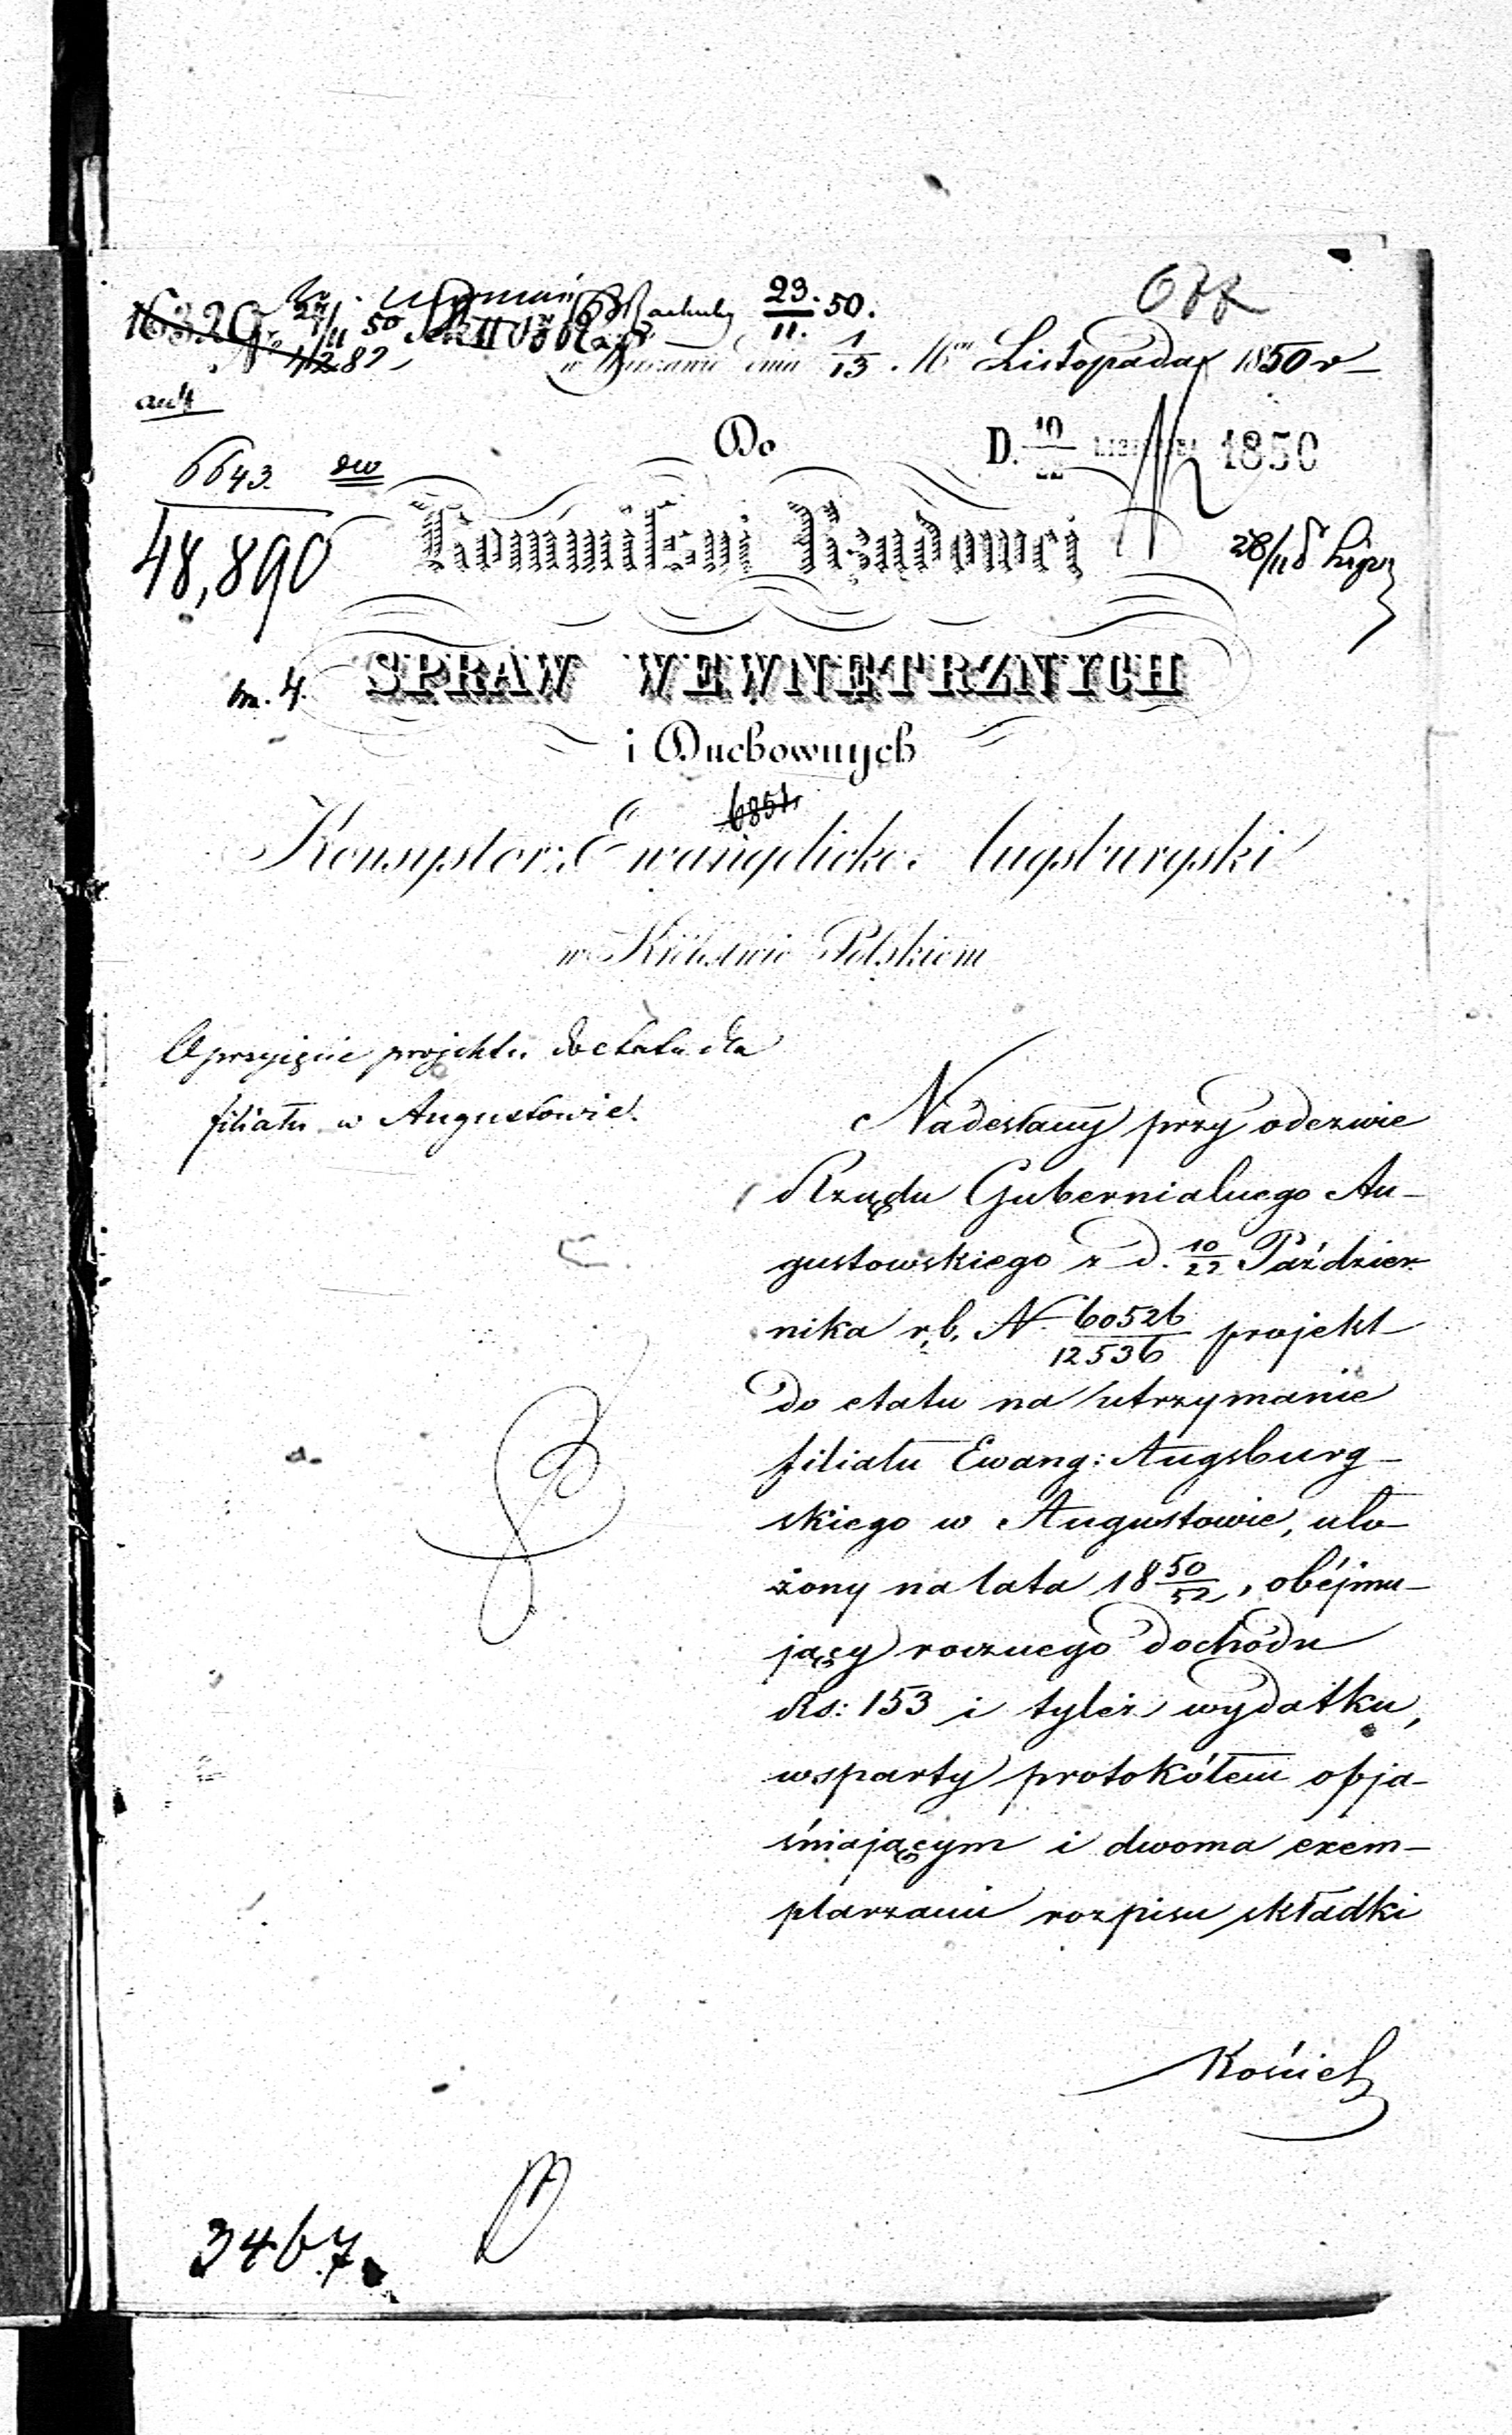 23./11. 50.
16329
No 11282
w Warszawie dnia 1/13 Listopada 1850 r
Do
D. 10/22 1850
6643.
48,890
Kommissyi Rządowej
28/11
m. 4.
SPRAW WEWNĘTRZNYCH
i Duchownych
6851
Konsystor: Ewangelicko: Augsburgski
w Królestwie Polskiem
O przyjęcie projektu do etatu dla
filiału w Augustowie.
Nadesłany przy odezwie
Rządu Gubernialnego Au-
gustowskiego z d. 10/22 Paździer-
nika r. b. N 60526/12536 projekt
do etatu na utrzymanie
filiału Ewang: Augsburg-
skiego w Augustowie, uło-
żony na lata 18 50/52, obéjmu-
jący rocznego dochodu
Rs: 153 i tyleż wydatku,
wsparty protokółem obja-
śniającym i dwoma exem-
plarzami rozpisu składki
Kościel
3467.